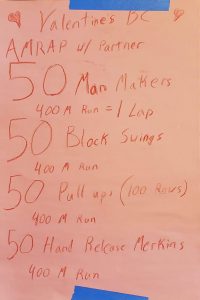 Valentine's BC
AMRAP w/ Partner
50 Man Makers
400 M Run = 1 Lap
50 Block Swings
400 M Run
50 Pull ups (100 Rows)
400 M Run
50 Hand Release Merkins
400 M Run